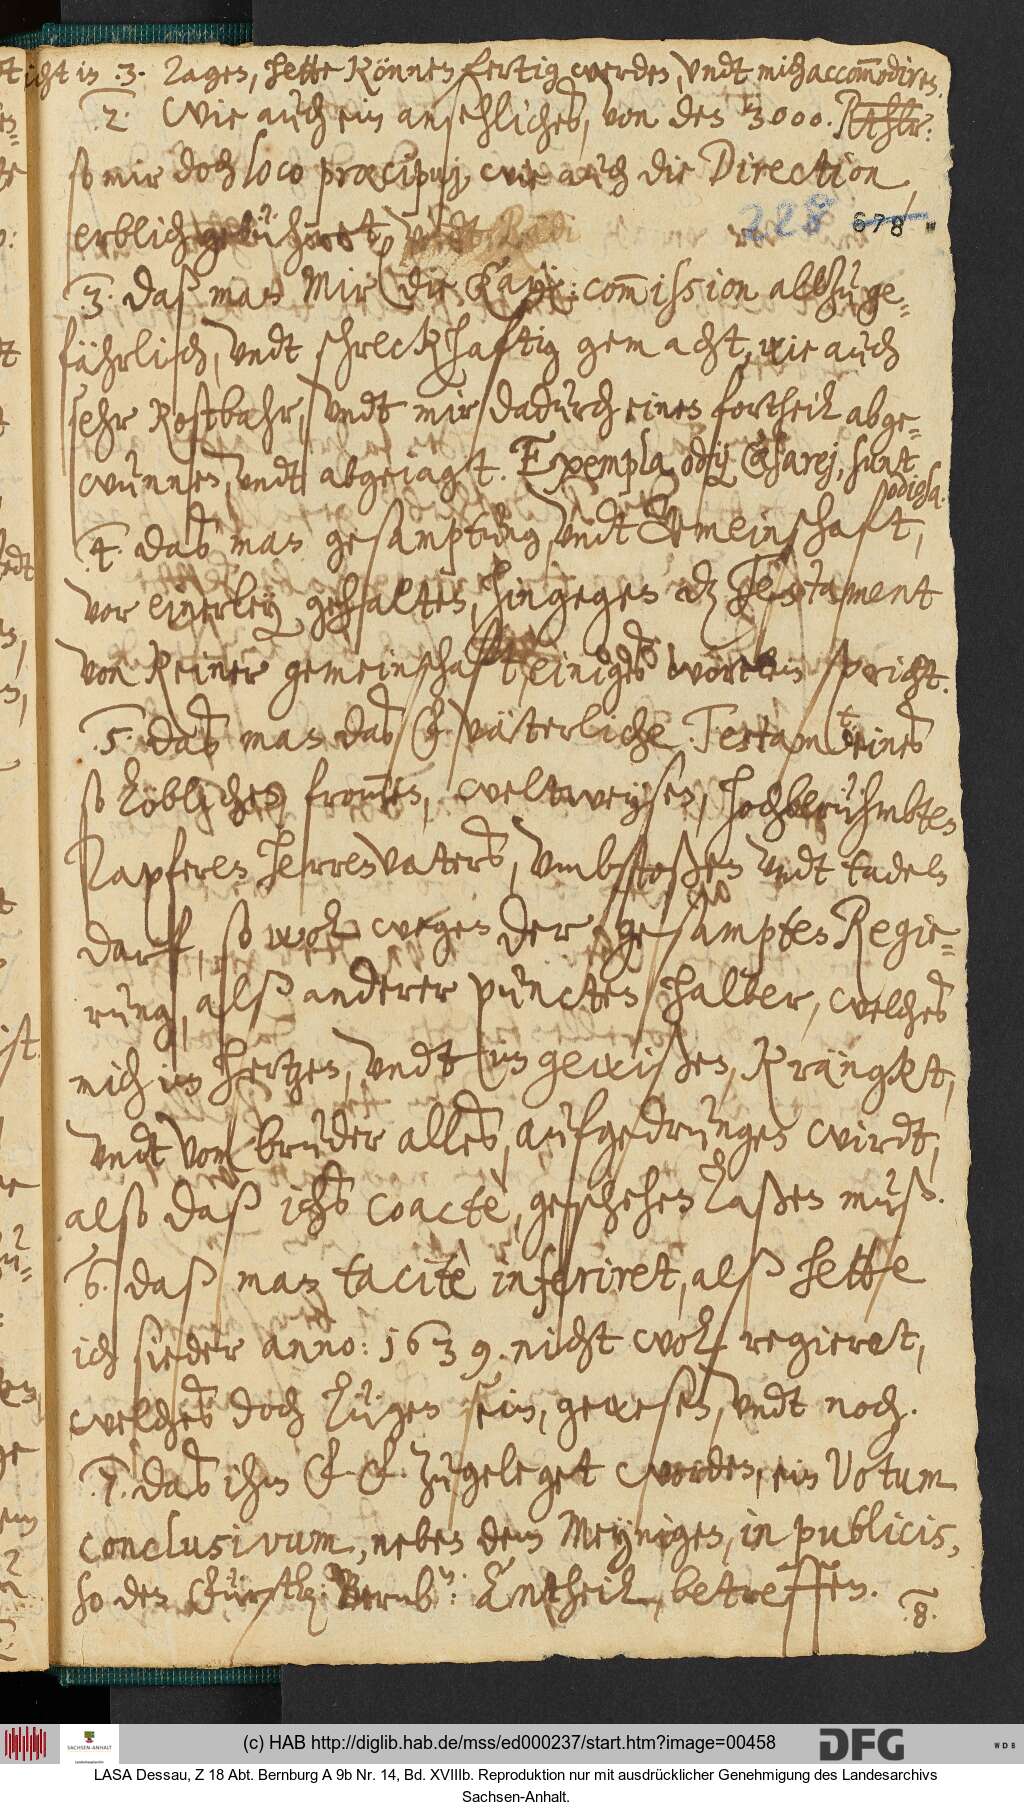 icht in .3. Tagen, hette können fertig werden, undt mich accom̄odiren.
2. Wie auch ein ansehliches, von den 3000. Rthlr:
so mir doch loco præcipuj, wie auch die Direction,
erblich gebühret, undt
228 678
3. daß man Mir die Kay: com̄ission allzu ge-
fährlich, undt schreckhaftig gemacht, wie auch
sehr kostbahr, undt mir dadurch einen fortheil abge-
wunnen, undt abgejagt. Exempla, odij Cæsarej, sunt
odiosa.
4. das man gesamptung, undt Gemeinschaft,
vor einerley gehalten, hingegen dz Testament
von keiner gemeinschaft einiges wörtlein spricht.
5. das man das G. väterliche Testam̅t eines
so löblichen from̄en, weltweysen, hochberühmbten
Tapferen Herrenvaters, umbstoßen undt tadeln
darf, so wol wegen der gesampten Regie-
rung, alß anderer puncten halber, welches
mich im hertzen, undt im gewißen, kränckt,
undt vom bruder alles, aufgedrungen wirdt,
also daß ichs coactè, geschehen laßen muß.
6. daß man tacitè inferiret, alß hette
ich sieder anno: 1639. nicht wol regieret,
welches doch lügen sein, gewesen, undt noch.
7. das ihm E. E. zugeleget worden, ein Votum
conclusivum, neben dem Meynigen, in publicis,
so den Fürstl: Bernb: Antheil, betreffen.
8.
(c) HAB http://diglib.hab.de/mss/ed000237/start.htm?image=00458
SACHSEN-ANHALT
DFG
WDB
LASA Dessau, Z 18 Abt. Bernburg A 9b Nr. 14, Bd. XVIIIb. Reproduktion nur mit ausdrücklicher Genehmigung des Landesarchivs
Sachsen-Anhalt.